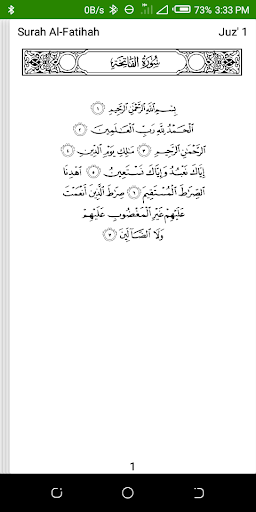 0B/s 73% 3:33 PM
Surah Al-Fatihah Juz' 1
سُورَةُ الفَاتِحَةِ
بِسْمِ ٱللَّهِ ٱلرَّحْمَٰنِ ٱلرَّحِيمِ ١
ٱلْحَمْدُ لِلَّهِ رَبِّ ٱلْعَٰلَمِينَ ٢
ٱلرَّحْمَٰنِ ٱلرَّحِيمِ ٣ مَٰلِكِ يَوْمِ ٱلدِّينِ ٤
إِيَّاكَ نَعْبُدُ وَإِيَّاكَ نَسْتَعِينُ ٥ ٱهْدِنَا
ٱلصِّرَٰطَ ٱلْمُسْتَقِيمَ ٦ صِرَٰطَ ٱلَّذِينَ أَنْعَمْتَ
عَلَيْهِمْ غَيْرِ ٱلْمَغْضُوبِ عَلَيْهِمْ
وَلَا ٱلضَّآلِّينَ ٧
1